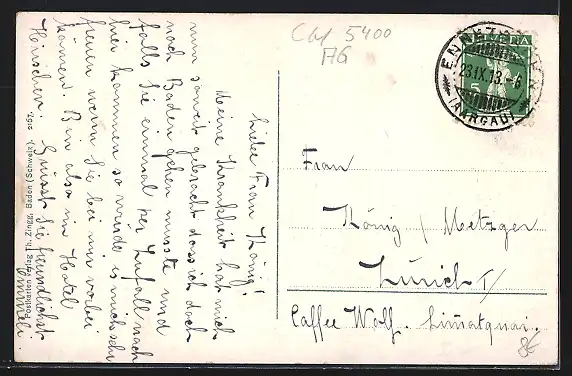 Liebe Frau König!
Meine Krankheit hat mich
nun soweit gebracht dass ich doch
nach Baden gehen musste und
falls Sie einmal per Zufall nach
hier kommen so würde es mich sehr
freuen wenn Sie bei mir vorbei
kämen. Bin also im Hotel
Hirschen. Grüsst Sie freundlichst
Emmeli.
CH 5400
AG
HELVETIA
5
ENNETBADEN
23.IX.13.-6
(AARGAU)
Frau
König / Metzger
Zürich I/
Caffee Wolf. Limatquai.
8€
Postkarten Verlag Th. Zingg, Baden (Schweiz).